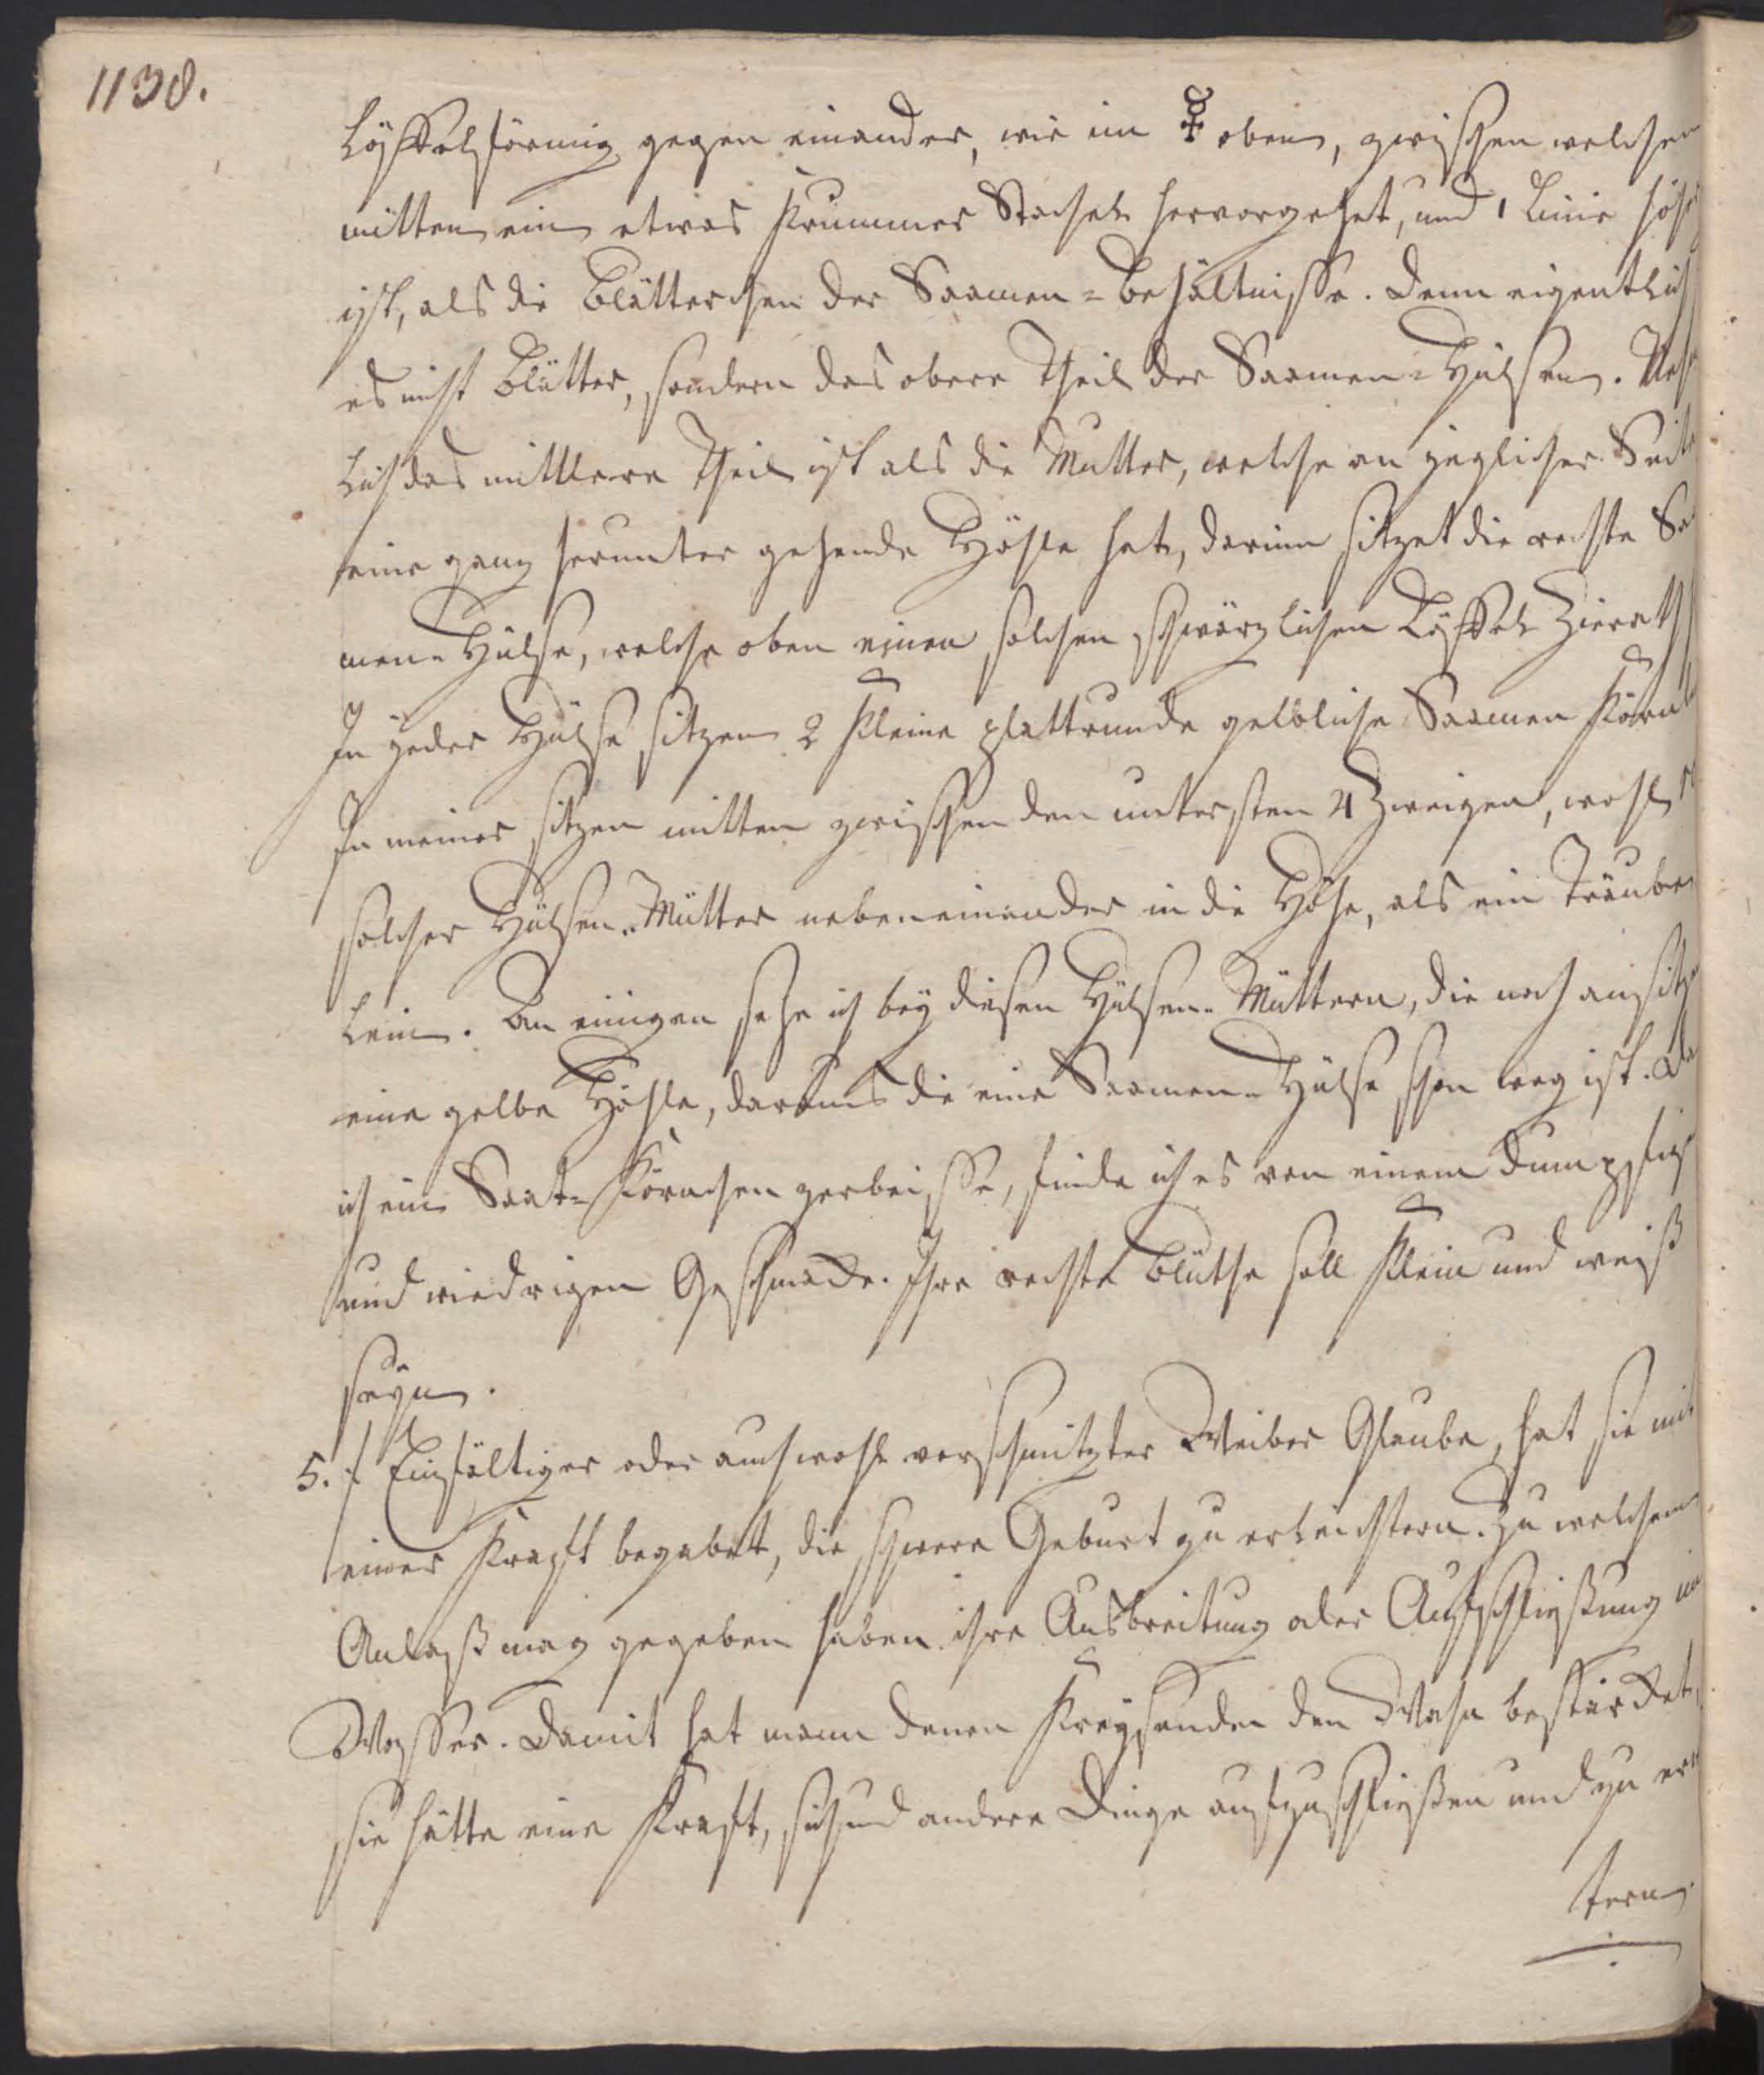 1138.
Löffelförmig gegen einander, wie im ☿ oben, zwischen welchen
mitten ein etwas krummer Stachel hervorgehet, und 1 Linie höh
ist, als die Blätterchen der Saamen=Behältnisse. Denn eigentlich
es nicht Blätter, sondern das obere Theil der Saamen=Hülsen.
lich das mittlere Theil ist als die Mutter, welche an jeglicher Seite
eine ganz herunter gehende Höhle hat, darinn sitzet die rechte Sa
men=Hülse, welche oben einen solchen schwärzlichen Löffel Zierath
In jeder Hülse sitzen 2 kleine plattrunde gelbliche Saamen Körnl
In meiner sitzen mitten zwischen den untersten 4 Zweigen, wohl
solcher Hülsen=Mütter neben einander in die Höhe, als ein Träube
lein. An einigen sehe ich bey diesen Hülsen=Müttern, die noch ansitze
eine gelbe Höhle, daraus die eine Saamen=Hülse schon weg ist.
ich ein Saat=Körnchen zerbeisse, finde ich es von einem dumpfig
und wiedrigen Geschmacke. Ihre rechte Blüthe soll klein und weiß
seyn.
5. Einfältiger oder auch wohl verschmitzter Weiber Glaube, hat sie mit
einer Kraft begabet, die schwere Geburt zu erleichtern. Zu welchem
Anlaß mag gegeben haben ihre Ausbreitung oder Aufschließung im
Wasser. Damit hat mann denen Kreysenden den Wahn bestärcket,
sie hätte eine Kraft, sich und andere Dinge aufzuschließen und zu er
tern.